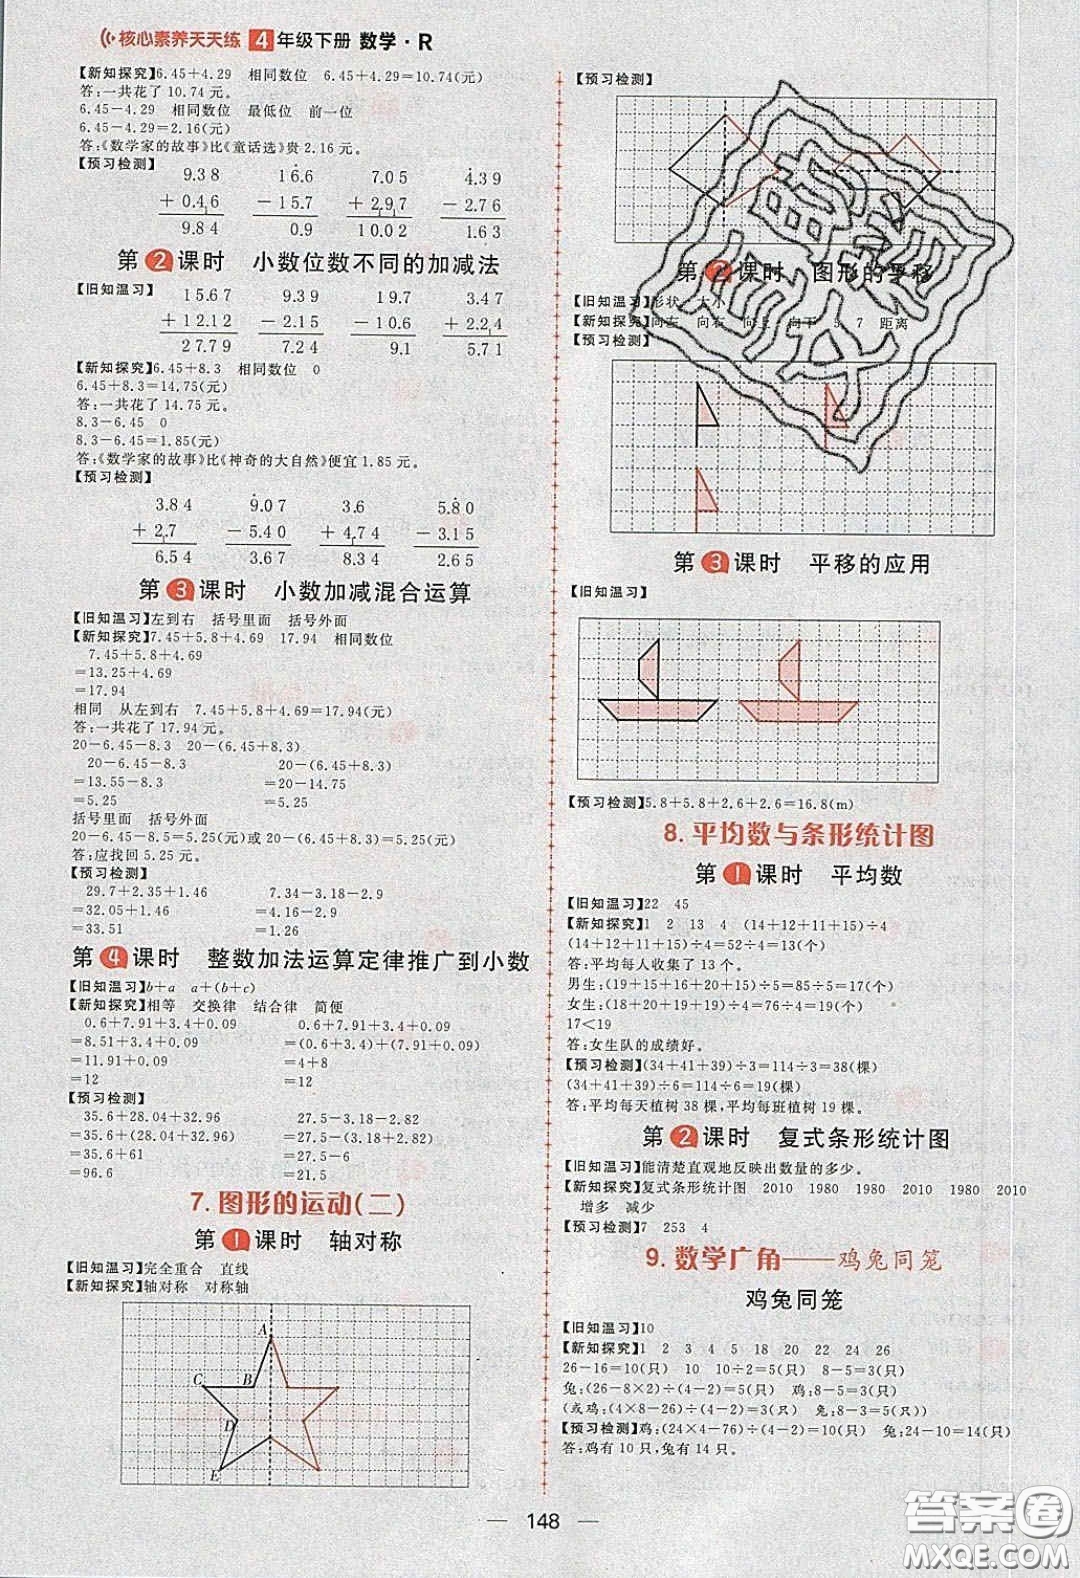 核心素养天天练 4年级下册 数学·R
【新知探究】6.45+4.29 相同数位 6.45+4.29=10.74(元)
答:一共花了 10.74 元。
6.45-4.29 相同数位 最低位 前一位
6.45-4.29=2.16(元)
答:《数学家的故事》比《童话选》贵 2.16 元。
【预习检测】
9.38 16.6 7.05 4.39
+0.46 -15.7 +2.97 -2.76
9.84 0.9 10.02 1.63
第2课时 小数位数不同的加减法
【旧知温习】
15.67 9.39 19.7 3.47
+12.12 -2.15 -10.6 +2.24
27.79 7.24 9.1 5.71
【新知探究】6.45+8.3 相同数位 0
6.45+8.3=14.75(元)
答:一共花了 14.75 元。
8.3-6.45 0
8.3-6.45=1.85(元)
答:《数学家的故事》比《神奇的大自然》便宜 1.85 元。
【预习检测】
3.84 9.07 3.6 5.80
+2.7 -5.40 +4.74 -3.15
6.54 3.67 8.34 2.65
第3课时 小数加减混合运算
【旧知温习】左到右 括号里面 括号外面
【新知探究】7.45+5.8+4.69 17.94 相同数位
7.45+5.8+4.69
=13.25+4.69
=17.94
相同 从左到右 7.45+5.8+4.69=17.94(元)
答:一共花了 17.94 元。
20-6.45-8.3 20-(6.45+8.3)
20-6.45-8.3 20-(6.45+8.3)
=13.55-8.3 =20-14.75
=5.25 =5.25
括号里面 括号外面
20-6.45-8.5=5.25(元)或 20-(6.45+8.3)=5.25(元)
答:应找回 5.25 元。
【预习检测】
29.7+2.35+1.46 7.34-3.18-2.9
=32.05+1.46 =4.16-2.9
=33.51 =1.26
第4课时 整数加法运算定律推广到小数
【旧知温习】b+a a+(b+c)
【新知探究】相等 交换律 结合律 简便
0.6+7.91+3.4+0.09 0.6+7.91+3.4+0.09
=8.51+3.4+0.09 =(0.6+3.4)+(7.91+0.09)
=11.91+0.09 =4+8
=12 =12
【预习检测】
35.6+28.04+32.96 27.5-3.18-2.82
=35.6+(28.04+32.96) =27.5-(3.18+2.82)
=35.6+61 =27.5-6
=96.6 =21.5
7. 图形的运动(二)
第1课时 轴对称
【旧知温习】完全重合 直线
【新知探究】轴对称 对称轴
A
C B
D
E
【预习检测】
第2课时 图形的平移
【旧知温习】形状 大小
【新知探究】向左 向右 向上 向下 5 7 距离
【预习检测】
第3课时 平移的应用
【旧知温习】
【预习检测】5.8+5.8+2.6+2.6=16.8(m)
8. 平均数与条形统计图
第1课时 平均数
【旧知温习】22 45
【新知探究】1 2 13 4 (14+12+11+15)÷4
(14+12+11+15)÷4=52÷4=13(个)
答:平均每人收集了 13 个。
男生:(19+15+16+20+15)÷5=85÷5=17(个)
女生:(18+20+19+19)÷4=76÷4=19(个)
17<19
答:女生队的成绩好。
【预习检测】(34+41+39)÷3=114÷3=38(棵)
(34+41+39)÷6=114÷6=19(棵)
答:平均每天植树 38 棵,平均每班植树 19 棵。
第2课时 复式条形统计图
【旧知温习】能清楚直观地反映出数量的多少。
【新知探究】复式条形统计图 2010 1980 1980 2010 1980 2010
增多 减少
【预习检测】7 253 4
9. 数学广角——鸡兔同笼
鸡兔同笼
【旧知温习】10
【新知探究】1 2 3 4 5 18 20 22 24 26
26-16=10(只) 10 10÷2=5(只) 8-5=3(只)
兔:(26-8×2)÷(4-2)=5(只) 鸡:8-5=3(只)
(或鸡:(4×8-26)÷(4-2)=3(只) 兔:8-3=5(只))
【预习检测】鸡:(24×4-76)÷(4-2)=10(只) 兔:24-10=14(只)
答:鸡有 10 只,兔有 14 只。
148
答案圈
MXQE.COM